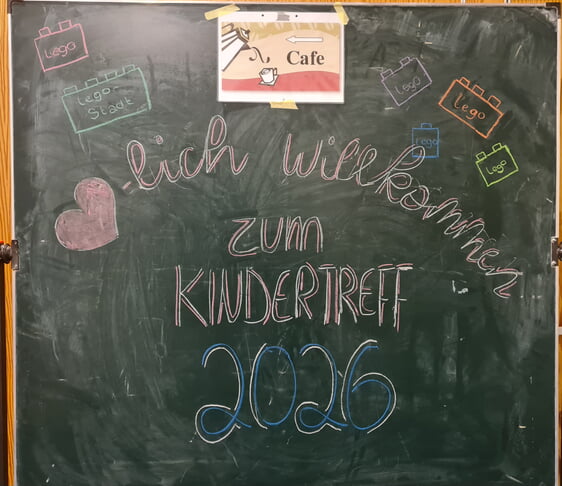 Lego
Lego
Stadt
Cafe
Lego
Lego
Lego
Lego
-lich willkommen
zum
KINDERTREFF
2026